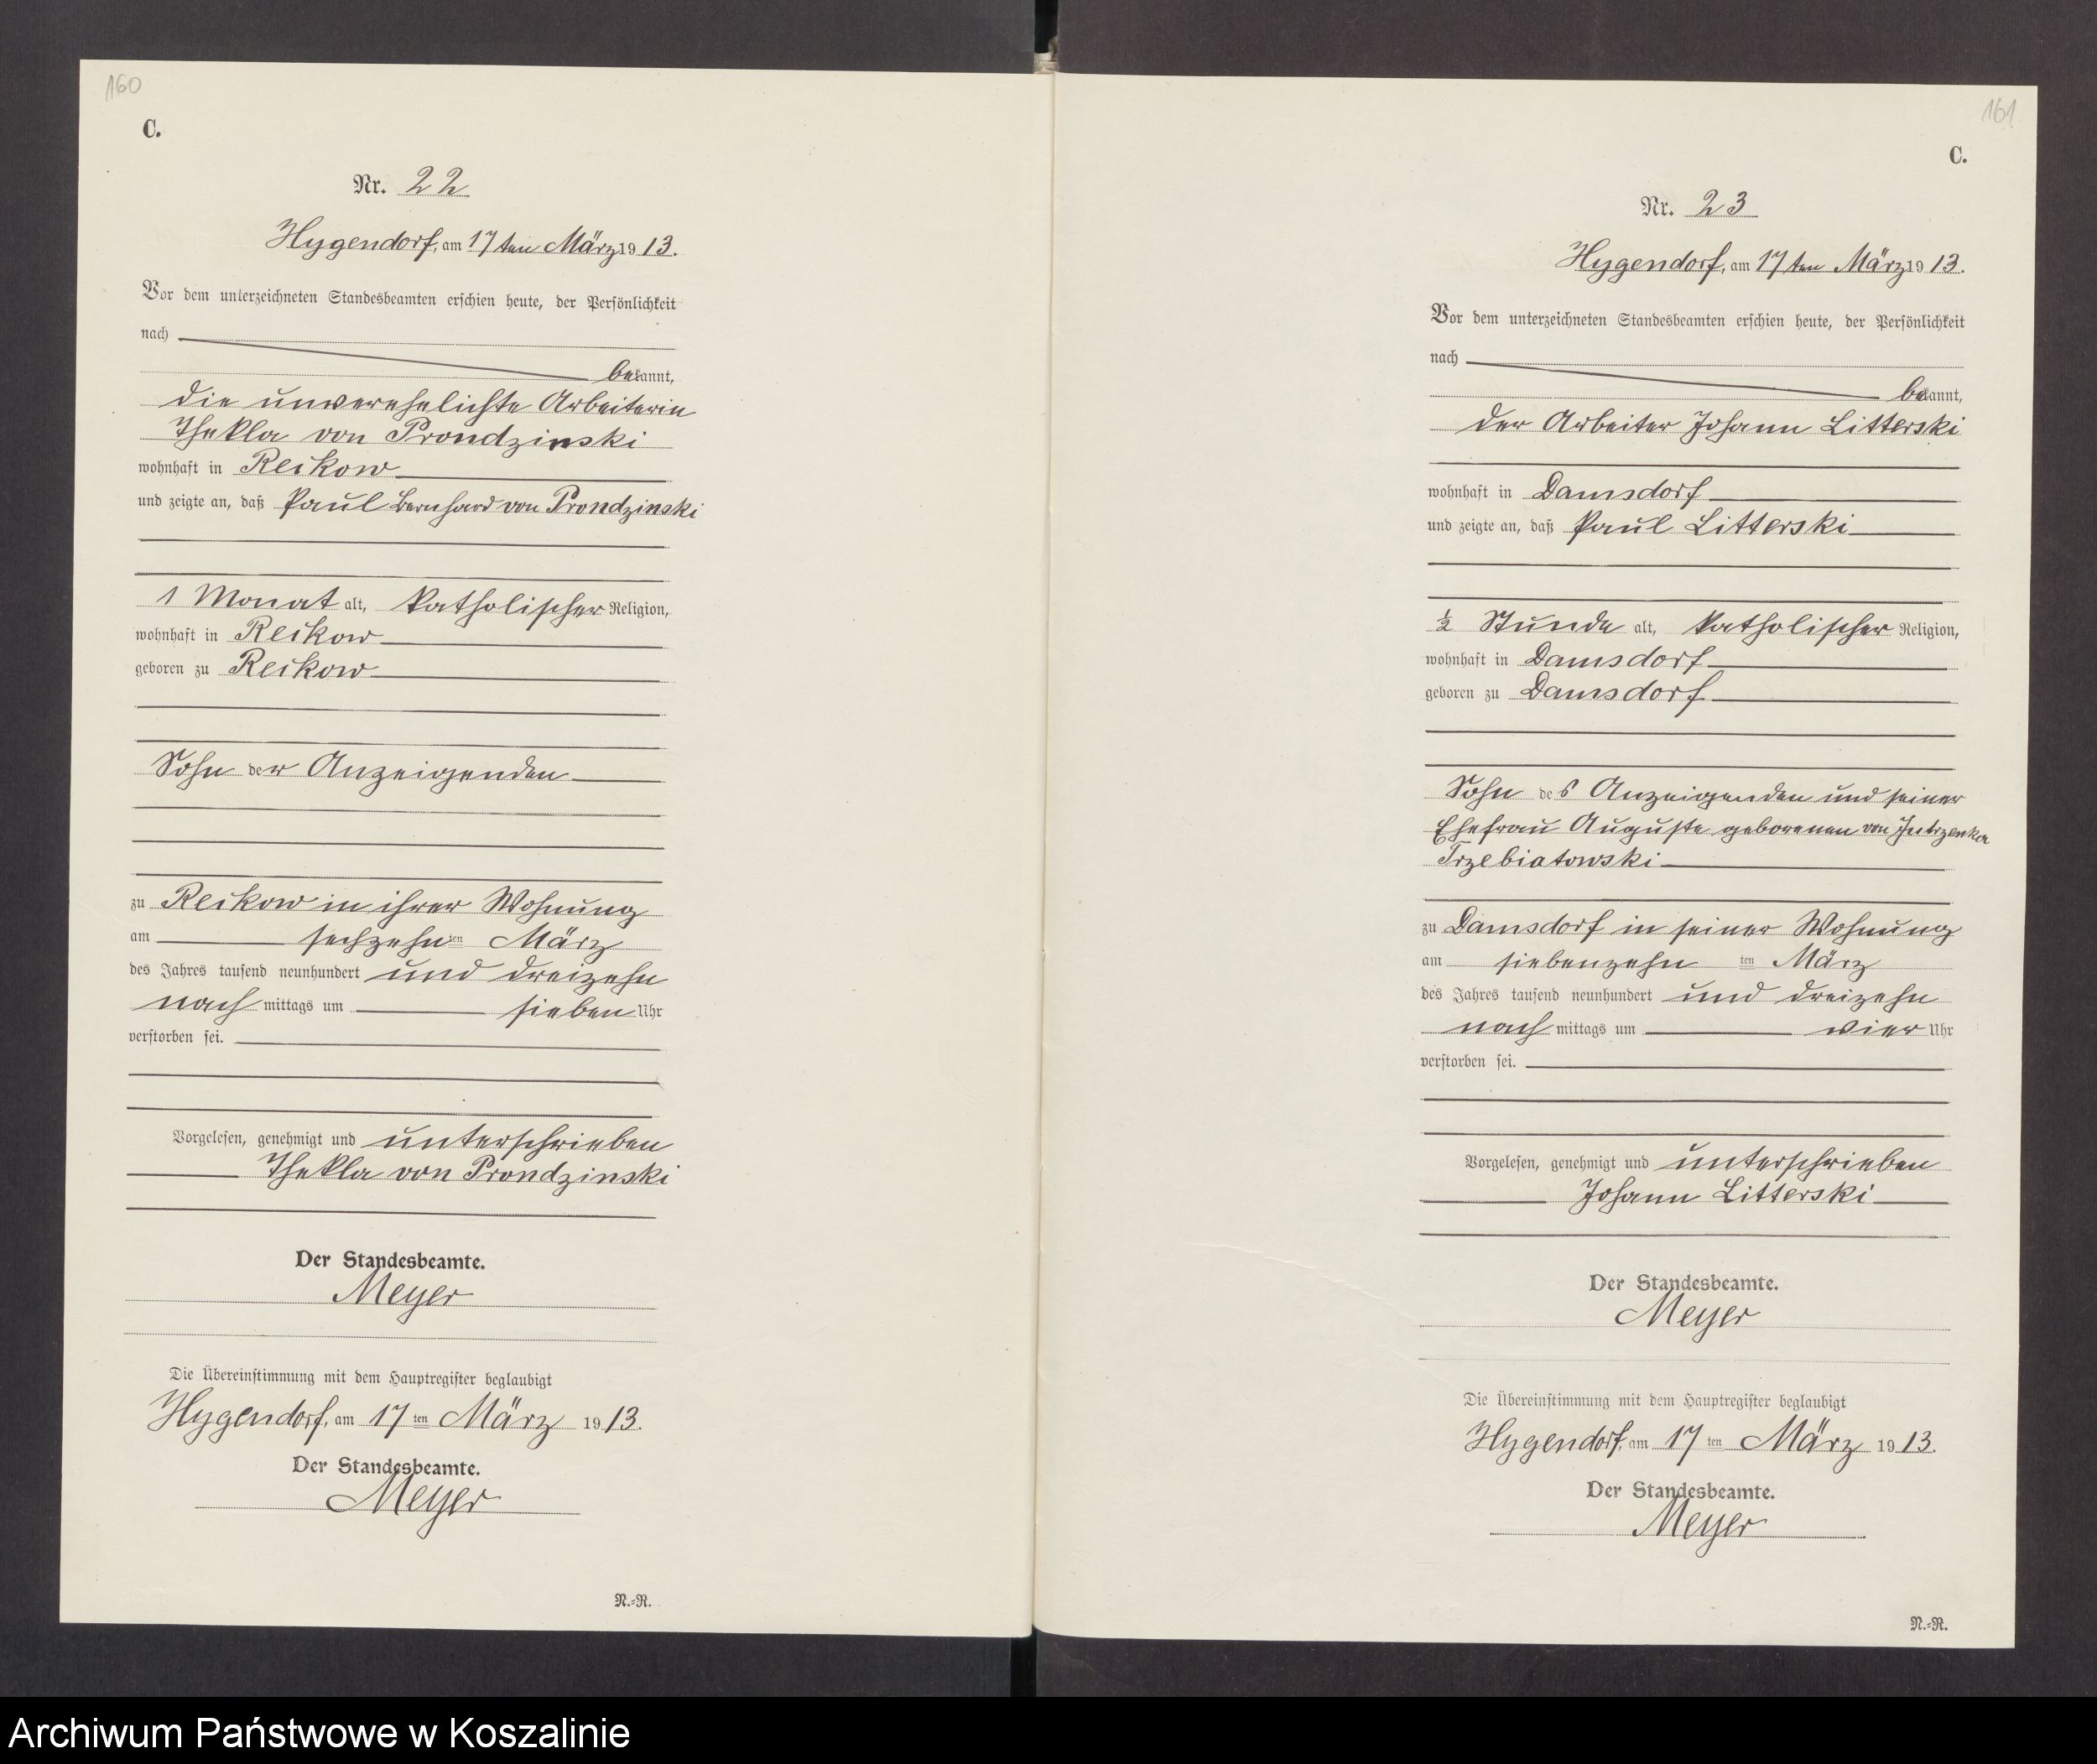 160
C.
Nr. 22
Hygendorf, am 17 ten März 1913.
Vor dem unterzeichneten Standesbeamten erschien heute, der Persönlichkeit
nach
bekannt,
die unverehelichte Arbeiterin
Thekla von Prondzinski
wohnhaft in Reikow
und zeigte an, daß Paul Bernhard von Prondzinski
1 Monat alt, katholischer Religion,
wohnhaft in Reikow
geboren zu Reikow
Sohn der Anzeigenden
zu Reikow in ihrer Wohnung
am sechzehnten März
des Jahres tausend neunhundert und dreizehn
nach mittags um sieben Uhr
verstorben sei.
Vorgelesen, genehmigt und unterschrieben
Thekla von Prondzinski
Der Standesbeamte.
Meyer
Die Übereinstimmung mit dem Hauptregister beglaubigt
Hygendorf, am 17 ten März 1913.
Der Standesbeamte.
Meyer
N.=R.
161
C.
Nr. 23
Hygendorf, am 17 ten März 1913.
Vor dem unterzeichneten Standesbeamten erschien heute, der Persönlichkeit
nach
bekannt,
der Arbeiter Johann Litterski
wohnhaft in Damsdorf
und zeigte an, daß Paul Litterski
½ Stunde alt, katholischer Religion,
wohnhaft in Damsdorf
geboren zu Damsdorf
Sohn des Anzeigenden und seiner
Ehefrau Auguste geborenen von Jutrzenka
Trzebiatowski
zu Damsdorf in seiner Wohnung
am siebenzehn ten März
des Jahres tausend neunhundert und dreizehn
nach mittags um vier Uhr
verstorben sei.
Vorgelesen, genehmigt und unterschrieben
Johann Litterski
Der Standesbeamte.
Meyer
Die Übereinstimmung mit dem Hauptregister beglaubigt
Hygendorf, am 17 ten März 1913.
Der Standesbeamte.
Meyer
N.=R.
Archiwum Państwowe w Koszalinie